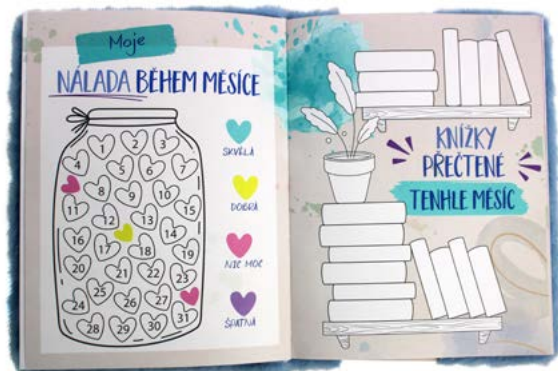 Moje
NÁLADA BĚHEM MĚSÍCE
1
2
3
4
5
6
7
8
9
10
11
12
13
14
15
16
17
18
19
20
21
22
23
24
25
26
27
28
29
30
31
SKVĚLÁ
DOBRÁ
NIC MOC
ŠPATNÁ
KNÍŽKY
PŘEČTENÉ
TENHLE MĚSÍC